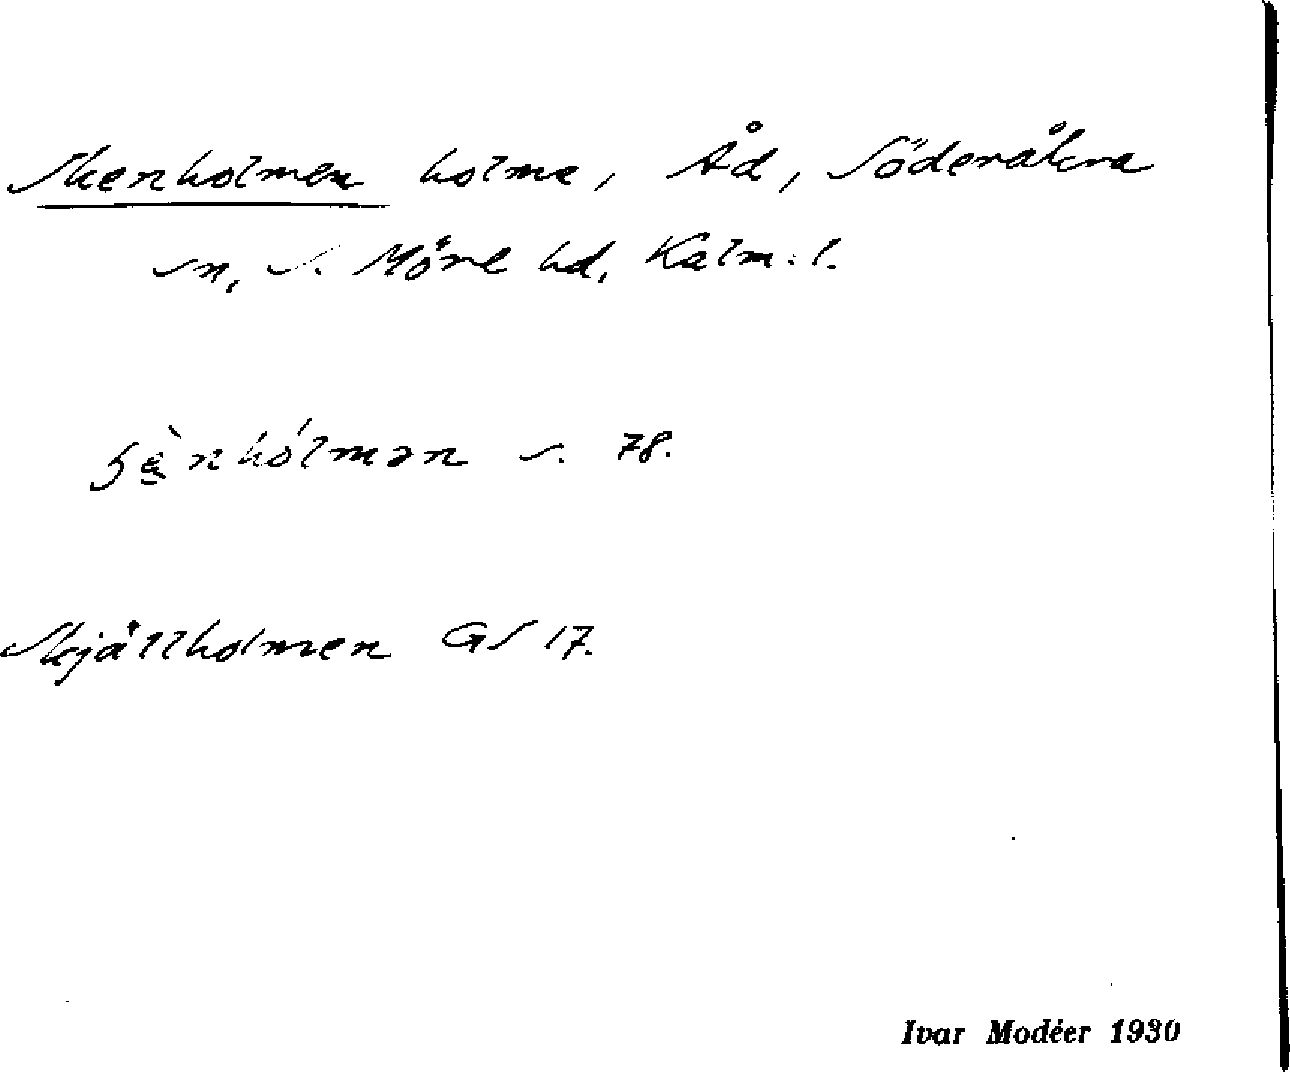 Skenholmen holme, Åd, Söderåkra
sn, S. Möre hd, Kalm. l.
ʃènhólmən s. 78.
Skjällholmen GS 17.
Ivar Modéer 1930